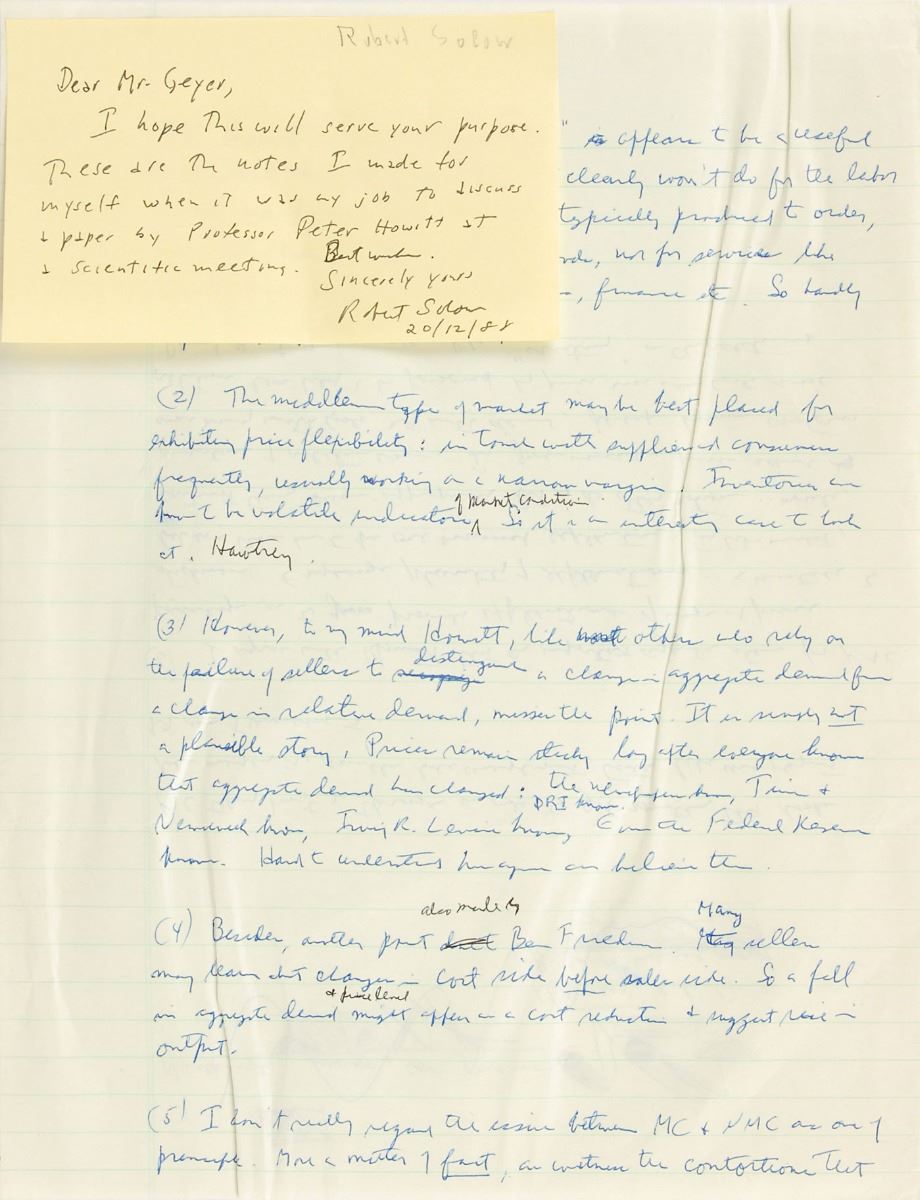 Robert Solow
Dear Mr. Geyer,
I hope this will serve your purpose.
These are the notes I made for
myself when it was my job to discuss
a paper by Professor Peter Howitt at
a scientific meeting. Best wishes.
Sincerely yours
Robert Solow
20/12/88
" appears to be a useful
clearly won't do for the labor
typically produced to order,
not for services like
finance etc. So hardly
(2) The middleman type of market may be best placed for
exhibiting price flexibility: in touch with suppliers and consumers
frequently, usually working on a narrow margin. Inventories
be volatile indicators
of market conditions
So it is an interesting case to look
at. Hawtrey.
(3) However, to my mind Howitt, like most others who rely on
the failure of sellers to
distinguish
a change in aggregate demand from
a change in relative demand, misses the point. It is simply not
a plausible story. Prices remain sticky long after everyone knows
that aggregate demand has changed: the newspapers know, Time &
DRI knows.
Newsweek know, Irving R. Levine knows, Even the Federal Reserve
knows. Hard to understand how anyone can believe this.
also made by
Many
(4) Besides, another point Ben Friedman. sellers
may learn about changes in cost side before sales side. So a fall
& price level
in aggregate demand might appear as a cost reduction & suggest rise in
output.
(5) I don't really regard the issue between MC & NMC as one of
principle. More a matter of fact, as witness the contortions that